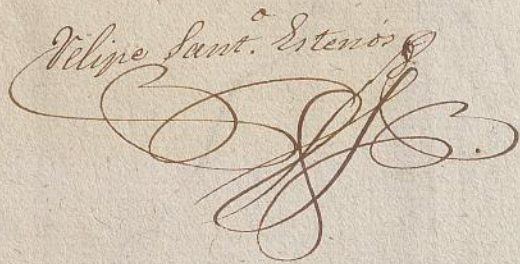 Felipe Sant.º Estenós